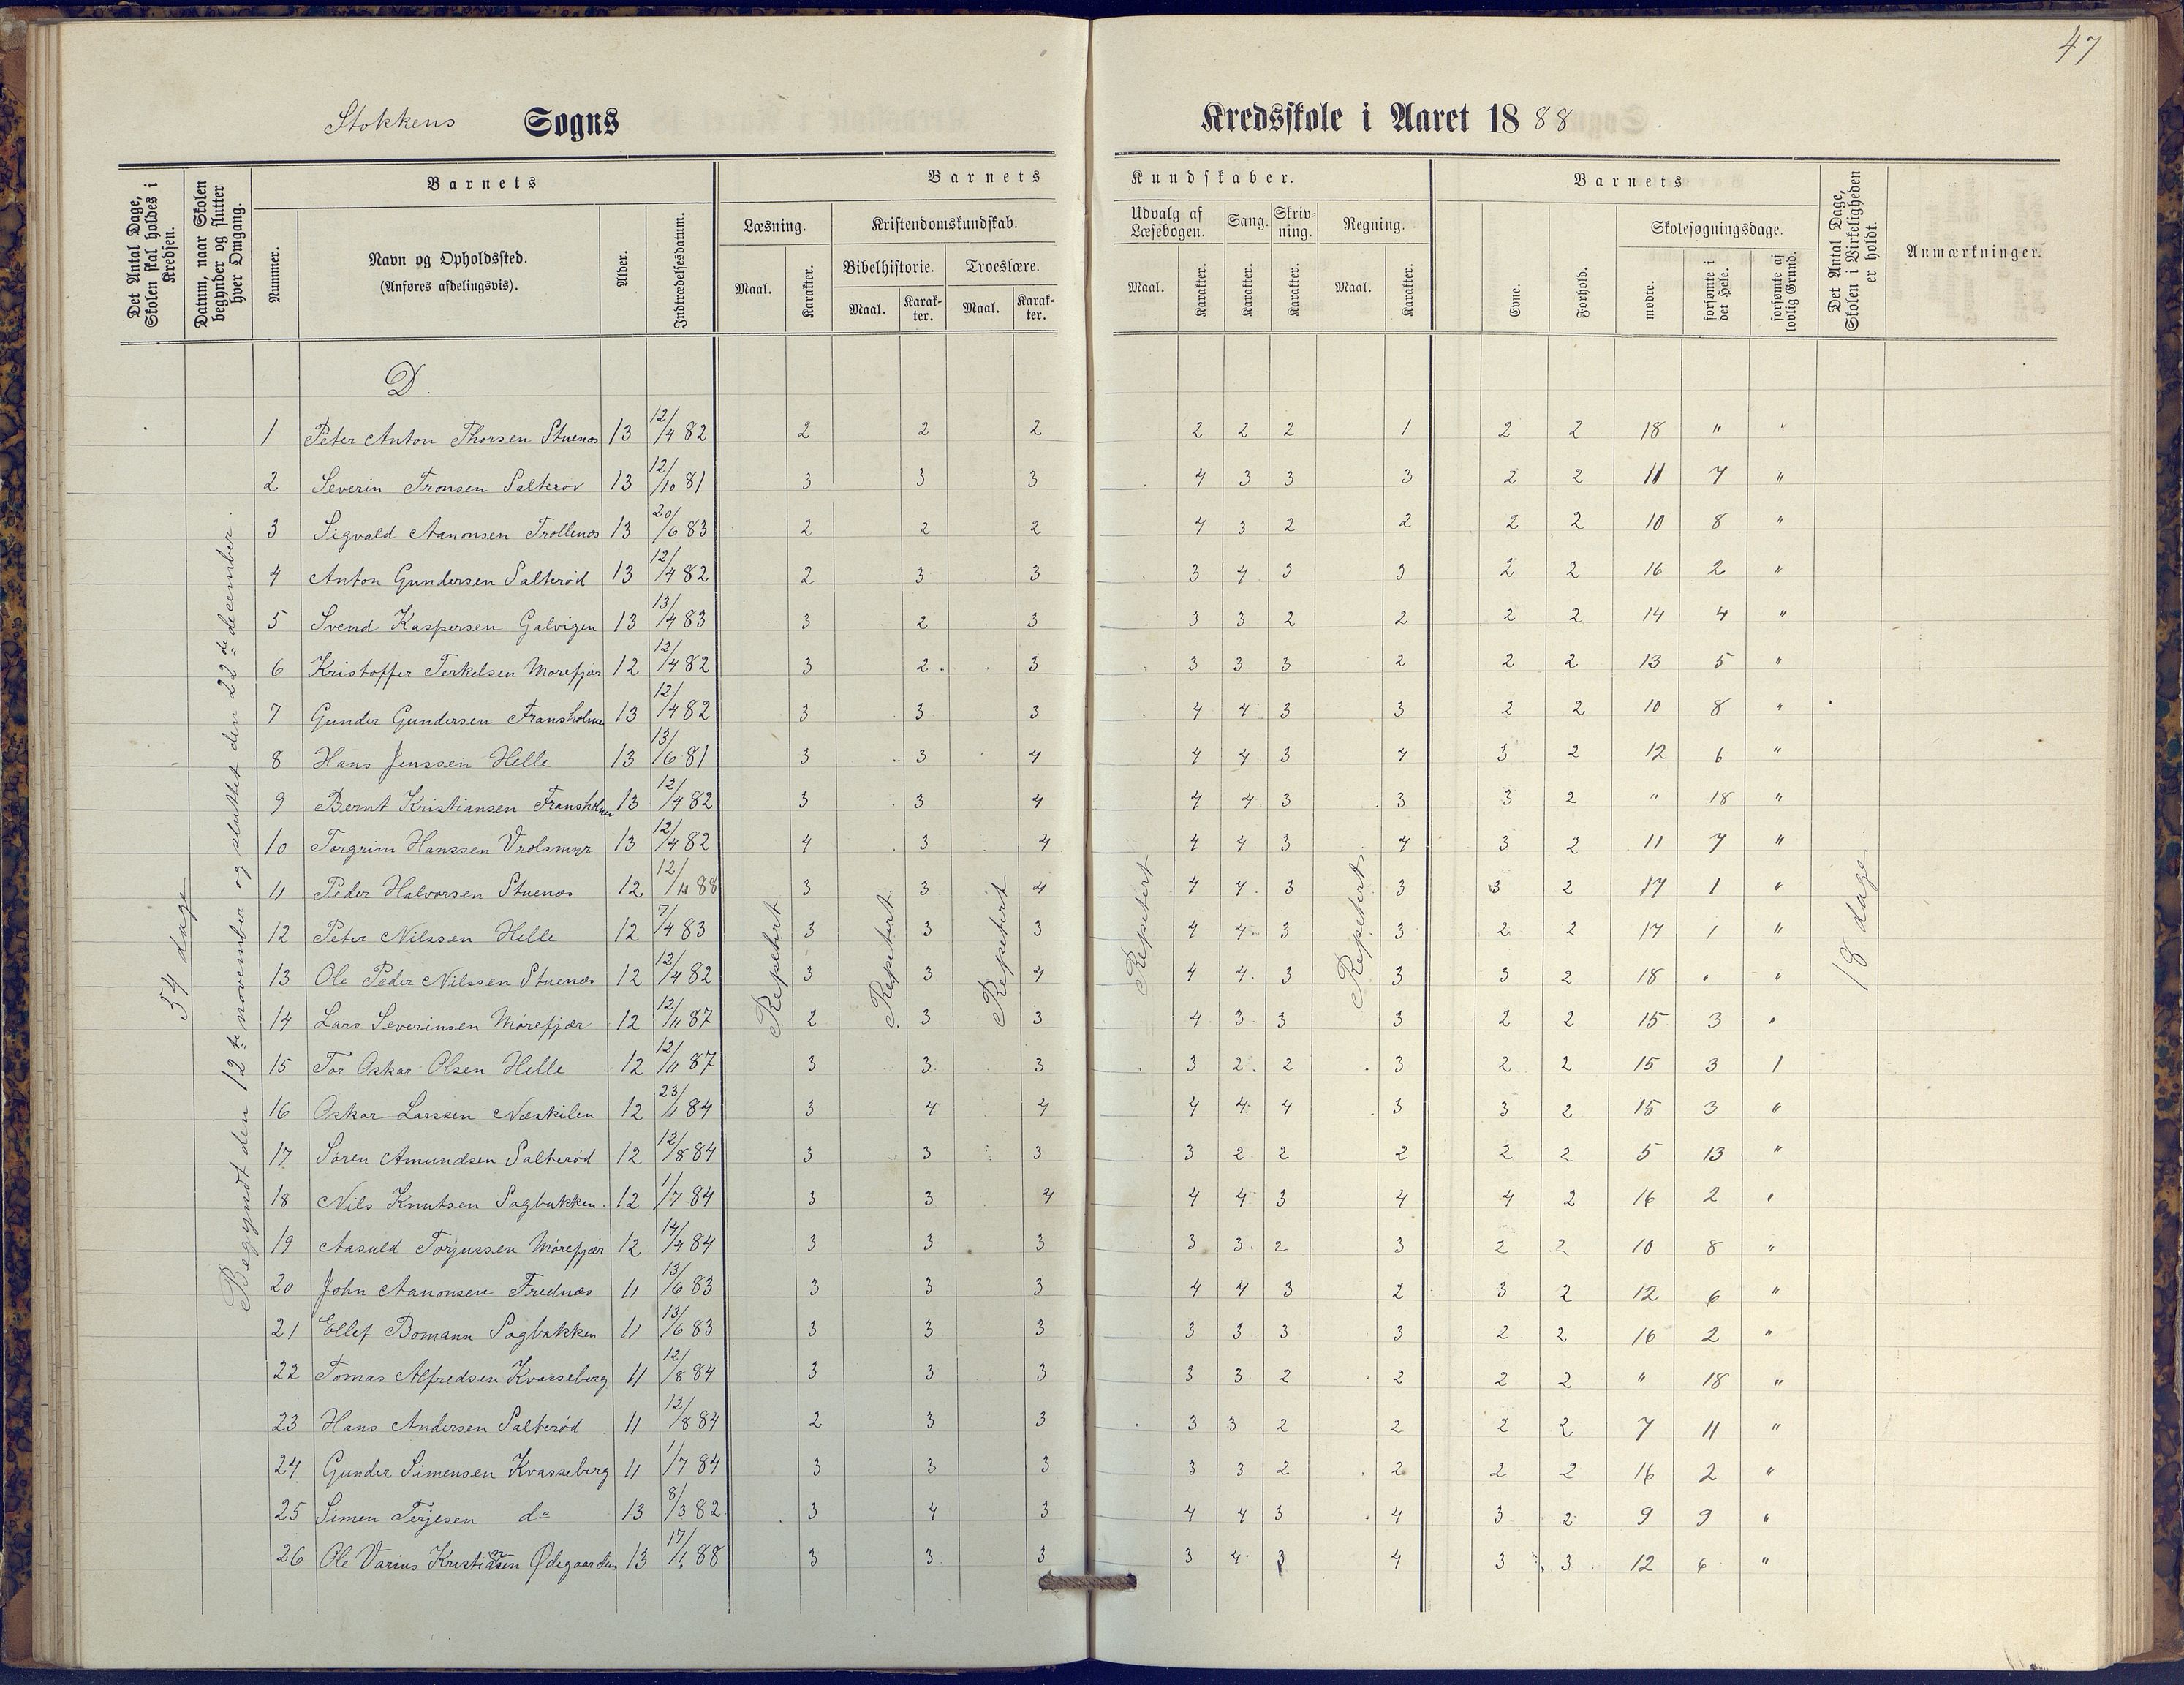 47
Stokkens Sogns Kredsskole i Aaret 1888
Det Antal Dage, Skolen skal holdes i Kredsen.
Datum, naar Skolen begynder og slutter hver Omgang.
Barnets
Nummer.
Navn og Opholdssted.
(Anføres afdelingsvis).
Alder.
Indtrædelsesdatum.
Barnets Kundskaber.
Læsning. Maal. Karakter.
Kristendomskundskab.
Bibelhistorie. Maal. Karakter.
Troeslære. Maal. Karakter.
Udvalg af Læsebogen. Maal. Karakter.
Sang. Karakter.
Skrivning. Karakter.
Regning. Maal. Karakter.
Barnets
Evne. Forhold.
Skolesøgningsdage.
mødte. forsømte i det Hele. forsømte af lovlig Grund.
Det Antal Dage, Skolen i Virkeligheden er holdt.
Anmærkninger.
54 dage
Begyndt den 12te november og sluttet den 22de december.
Repetert Repetert Repetert Repetert Repetert
18 dage
D.
1 Peter Anton Thorsen Stuenæs 13 12/4 82 2 2 2 2 2 2 1 2 2 18 " "
2 Severin Tronsen Salterør 13 12/10 81 3 3 3 4 3 3 3 2 2 11 7 "
3 Sigvald Aanonsen Trollenæs 13 20/6 83 2 2 2 4 3 2 2 2 2 10 8 "
4 Anton Gundersen Salterød 13 12/4 82 2 3 3 3 4 3 3 2 2 16 2 "
5 Svend Kaspersen Galvigen 13 13/4 83 3 2 3 3 3 2 2 2 2 14 4 "
6 Kristoffer Terkelsen Morefjær 12 12/4 82 3 2 3 3 3 3 2 2 2 13 5 "
7 Gunder Gundersen Fransholmen 13 12/4 82 3 3 3 4 4 3 3 2 2 10 8 "
8 Hans Jenssen Helle 13 13/6 81 3 3 4 4 4 3 4 3 2 12 6 "
9 Bernt Kristiansen Fransholmen 13 12/4 82 3 3 4 4 4 3 3 3 2 " 18 "
10 Torgrim Hanssen Vrolsmyr 13 12/4 82 4 3 4 4 4 3 4 3 2 11 7 "
11 Peder Halvorsen Stuenæs 12 12/11 88 3 3 4 4 4 3 3 3 2 17 1 "
12 Peter Nilssen Helle 12 7/4 83 3 3 3 4 4 3 3 2 2 17 1 "
13 Ole Peder Nilssen Stuenæs 12 12/4 82 3 3 4 4 4 3 3 3 2 18 " "
14 Lars Severinsen Mørefjær 12 12/11 87 2 3 3 4 3 3 3 2 2 15 3 "
15 Tor Oskar Olsen Helle 12 12/11 87 3 3 3 3 2 2 3 2 2 15 3 1
16 Oskar Larssen Næskilen 12 23/11 84 3 4 4 4 4 4 3 3 2 15 3 "
17 Søren Amundsen Salterød 12 12/8 84 3 3 3 3 2 2 2 2 2 5 13 "
18 Nils Knutsen Sagbakken 12 1/7 84 3 3 4 4 4 3 4 4 2 16 2 "
19 Aasuld Torjussen Mørefjær 12 14/4 84 3 3 3 3 3 2 3 2 2 10 8 "
20 John Aanonsen Frednæs 11 13/6 83 3 3 3 4 4 3 2 3 2 12 6 "
21 Ellef Bomann Sagbakken 11 13/6 83 3 3 3 3 3 3 3 2 2 16 2 "
22 Tomas Alfredsen Kvasseberg 11 12/8 84 3 3 3 3 3 2 2 2 2 " 18 "
23 Hans Andersen Salterød 11 12/8 84 2 3 3 3 3 2 2 2 2 7 11 "
24 Gunder Simensen Kvasseberg 11 1/7 84 3 3 3 3 3 2 2 2 2 16 2 "
25 Simen Terjesen do 13 8/3 82 3 4 3 4 4 3 4 3 2 9 9 "
26 Ole Varius Kristiansen Ødegaarden 13 17/1 88 3 3 3 3 4 3 4 3 3 12 6 "